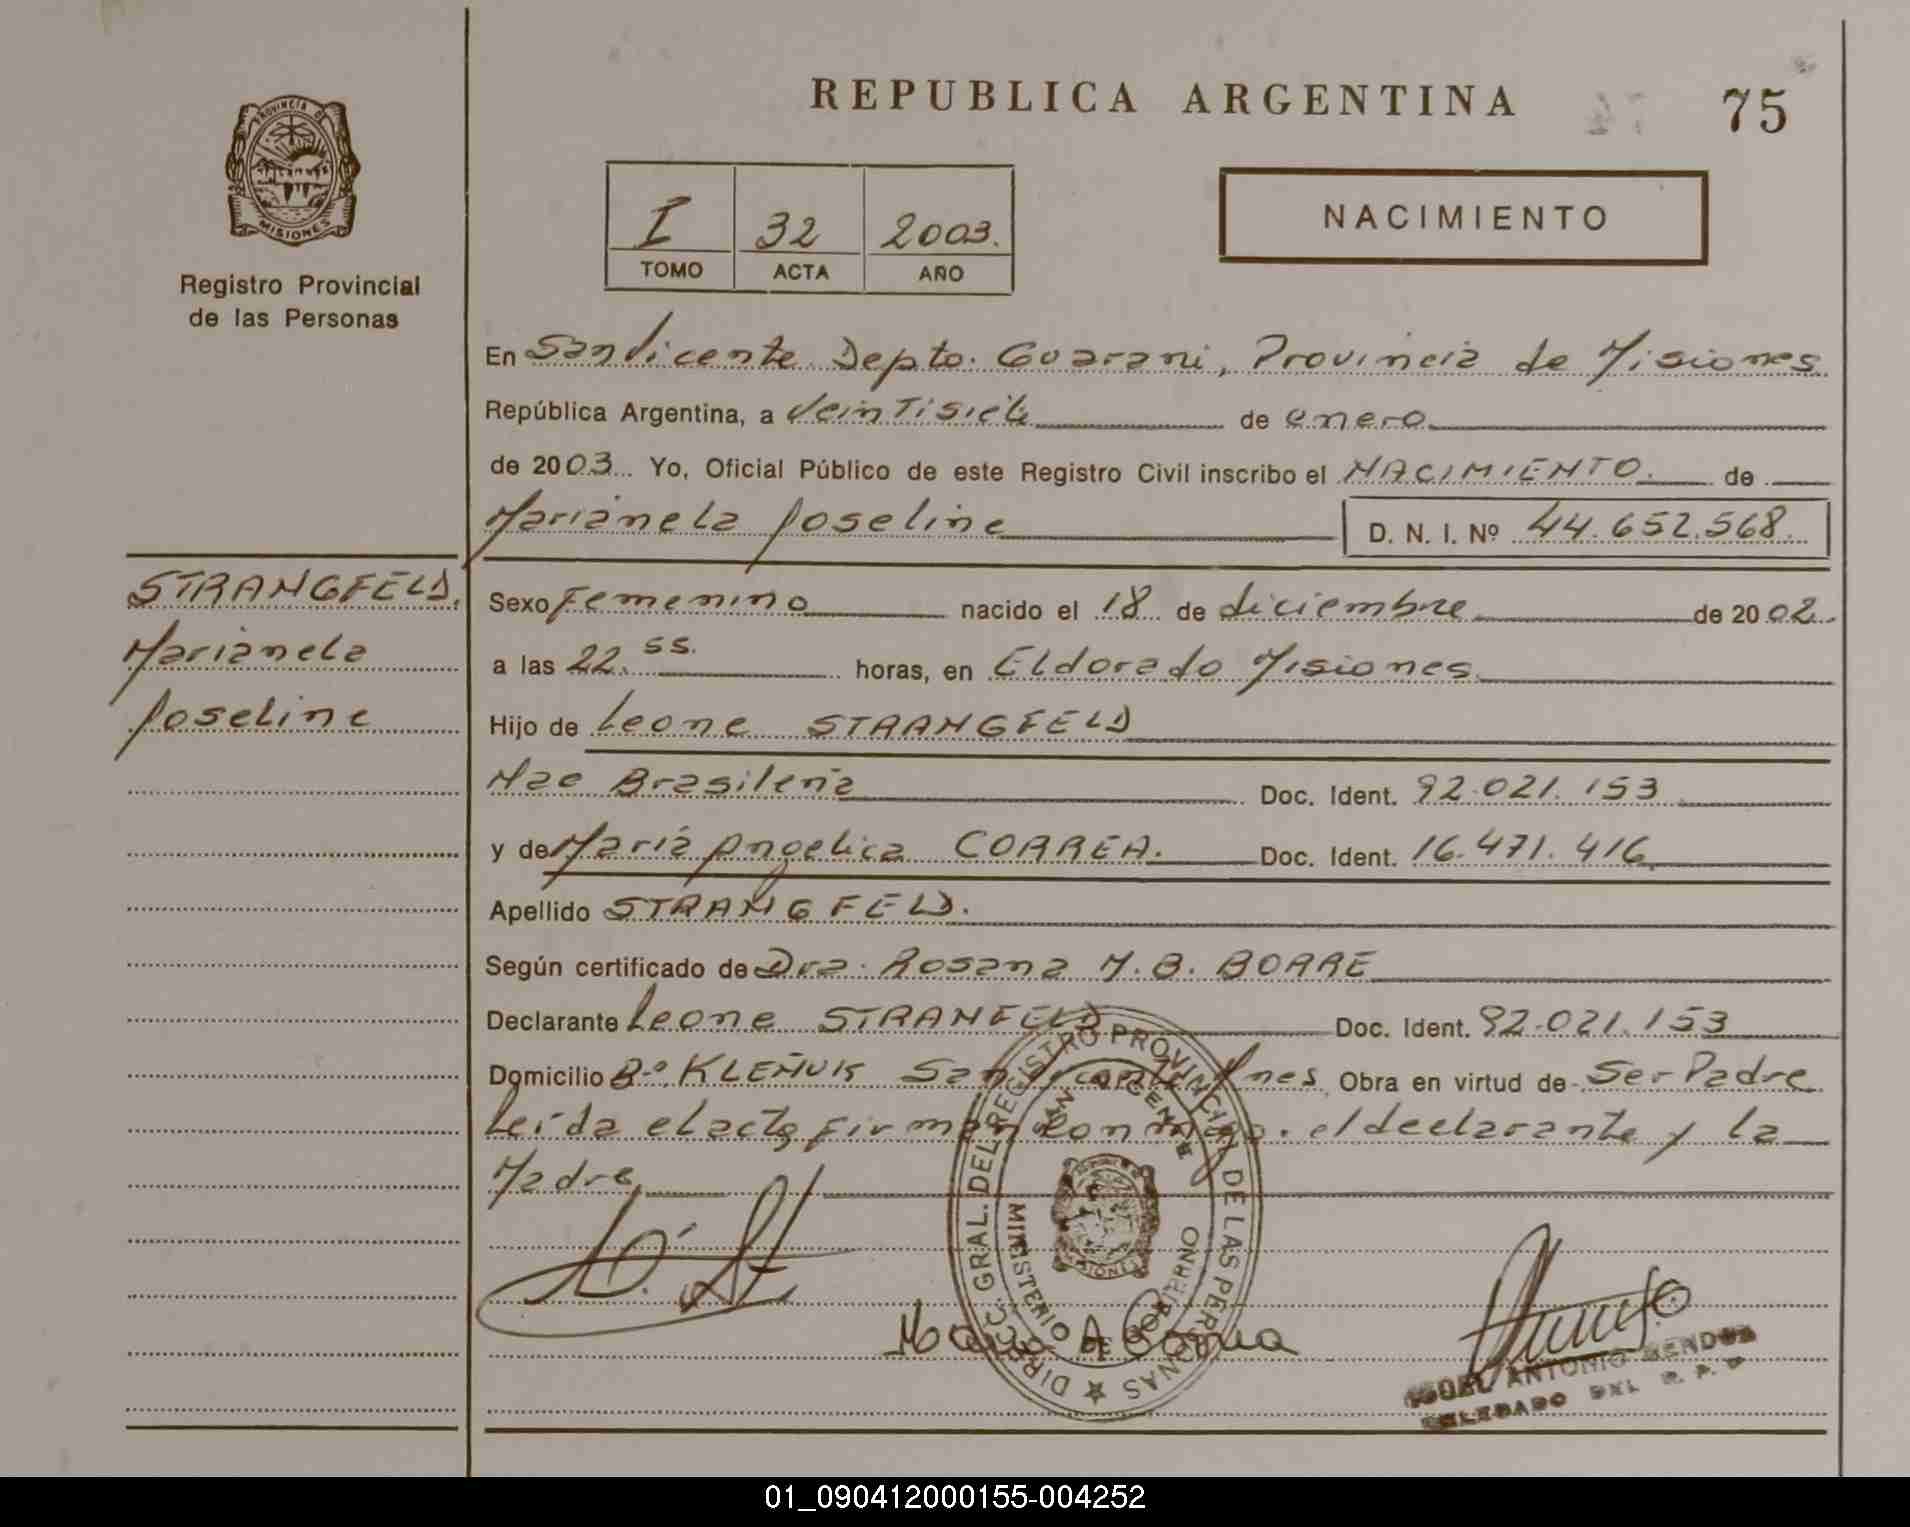 REPUBLICA ARGENTINA
75
PROVINCIA D
MISIONES
Registro Provincial
de las Personas
I 32 2003.
TOMO ACTA AÑO
NACIMIENTO
En San Vicente Depto. Guarani, Provincia de Misiones
República Argentina, a Veintisiete de enero
de 2003 Yo, Oficial Público de este Registro Civil inscribo el NACIMIENTO. de
Marianela Joseline D. N. I. Nº 44.652.568
STRANGFELD,
Marianela
Joseline
Sexo Femenino nacido el 18 de diciembre de 2002
a las 22.55. horas, en Eldorado Misiones
Hijo de Leone STRANGFELD
Nac Brasileña Doc. Ident. 92.021.153
y de Maria Angelica CORREA. Doc. Ident. 16.471.416
Apellido STRANGFELD.
Según certificado de Dra. Rosana M.B. BORRE
Declarante Leone STRANFELD Doc. Ident. 92.021.153
Domicilio Bº KLEÑUK San Vicente Mnes Obra en virtud de Ser Padre
Leida el acta firman conmigo. el declarante y la
Madre
DIRECC. GRAL. DEL REGISTRO PROVINCIAL DE LAS PERSONAS
SAN VICENTE
MINISTERIO DE GOBIERNO
MISIONES
Maria A Correa
ANTONIO MENDOZA
DELEGADO DEL R. P. P.
01_090412000155-004252